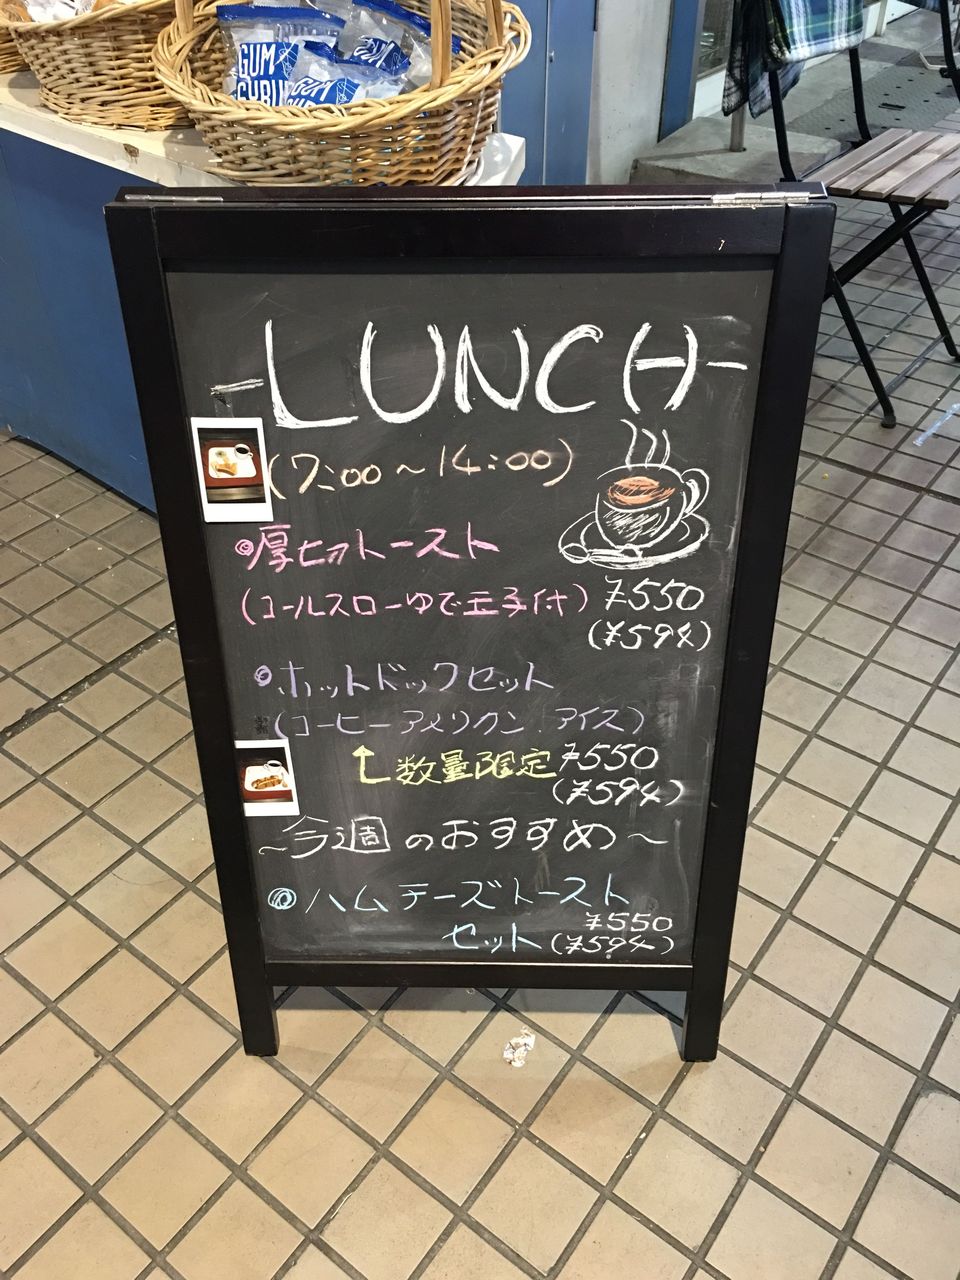 GUM
GUM
-LUNCH-
(7:00～14:00)
◎厚切トースト
(コールスローゆで玉子付) ¥550
(¥594)
◎ホットドックセット
(コーヒーアメリカン.アイス)
数量限定 ¥550
(¥594)
～今週のおすすめ～
◎ハムチーズトースト
セット ¥550
(¥594)